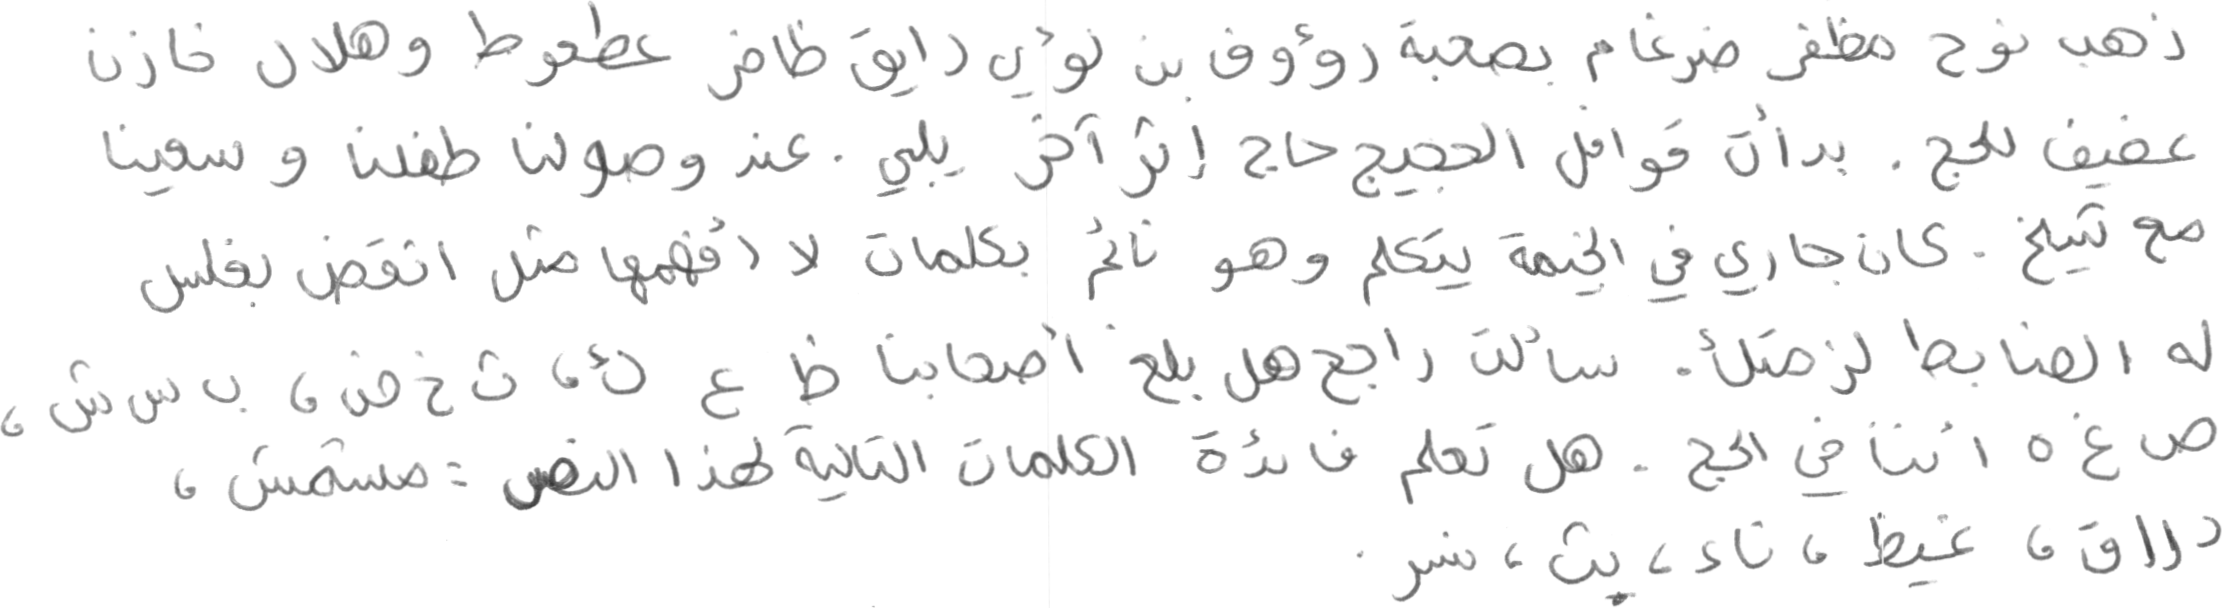 ذهب نوح مظفر ضرغام بصحبة رؤوف بن لؤي رايق ظافر عطعوط وهلال خازن
عفيف للحج . بدأت قوافل الحجيج حاج إثر آخر يلبي . عند وصولنا طفلنا و سعينا
مع شيخ . كان جاري في الخيمة يتكلم وهو نائم بكلمات لا أفهمها مثل انقض بغلس
له الضابط لزمتك . سألت راجح هل بلغ أصحابنا ظ ع ك ، ث خ ض ، ب س ش ،
ص غ ه اننا في الحج . هل تعلم فائدة الكلمات التالية لهذا النص : مستمش ،
درداق ، غيظ ، ناء ، يث ، نسر .